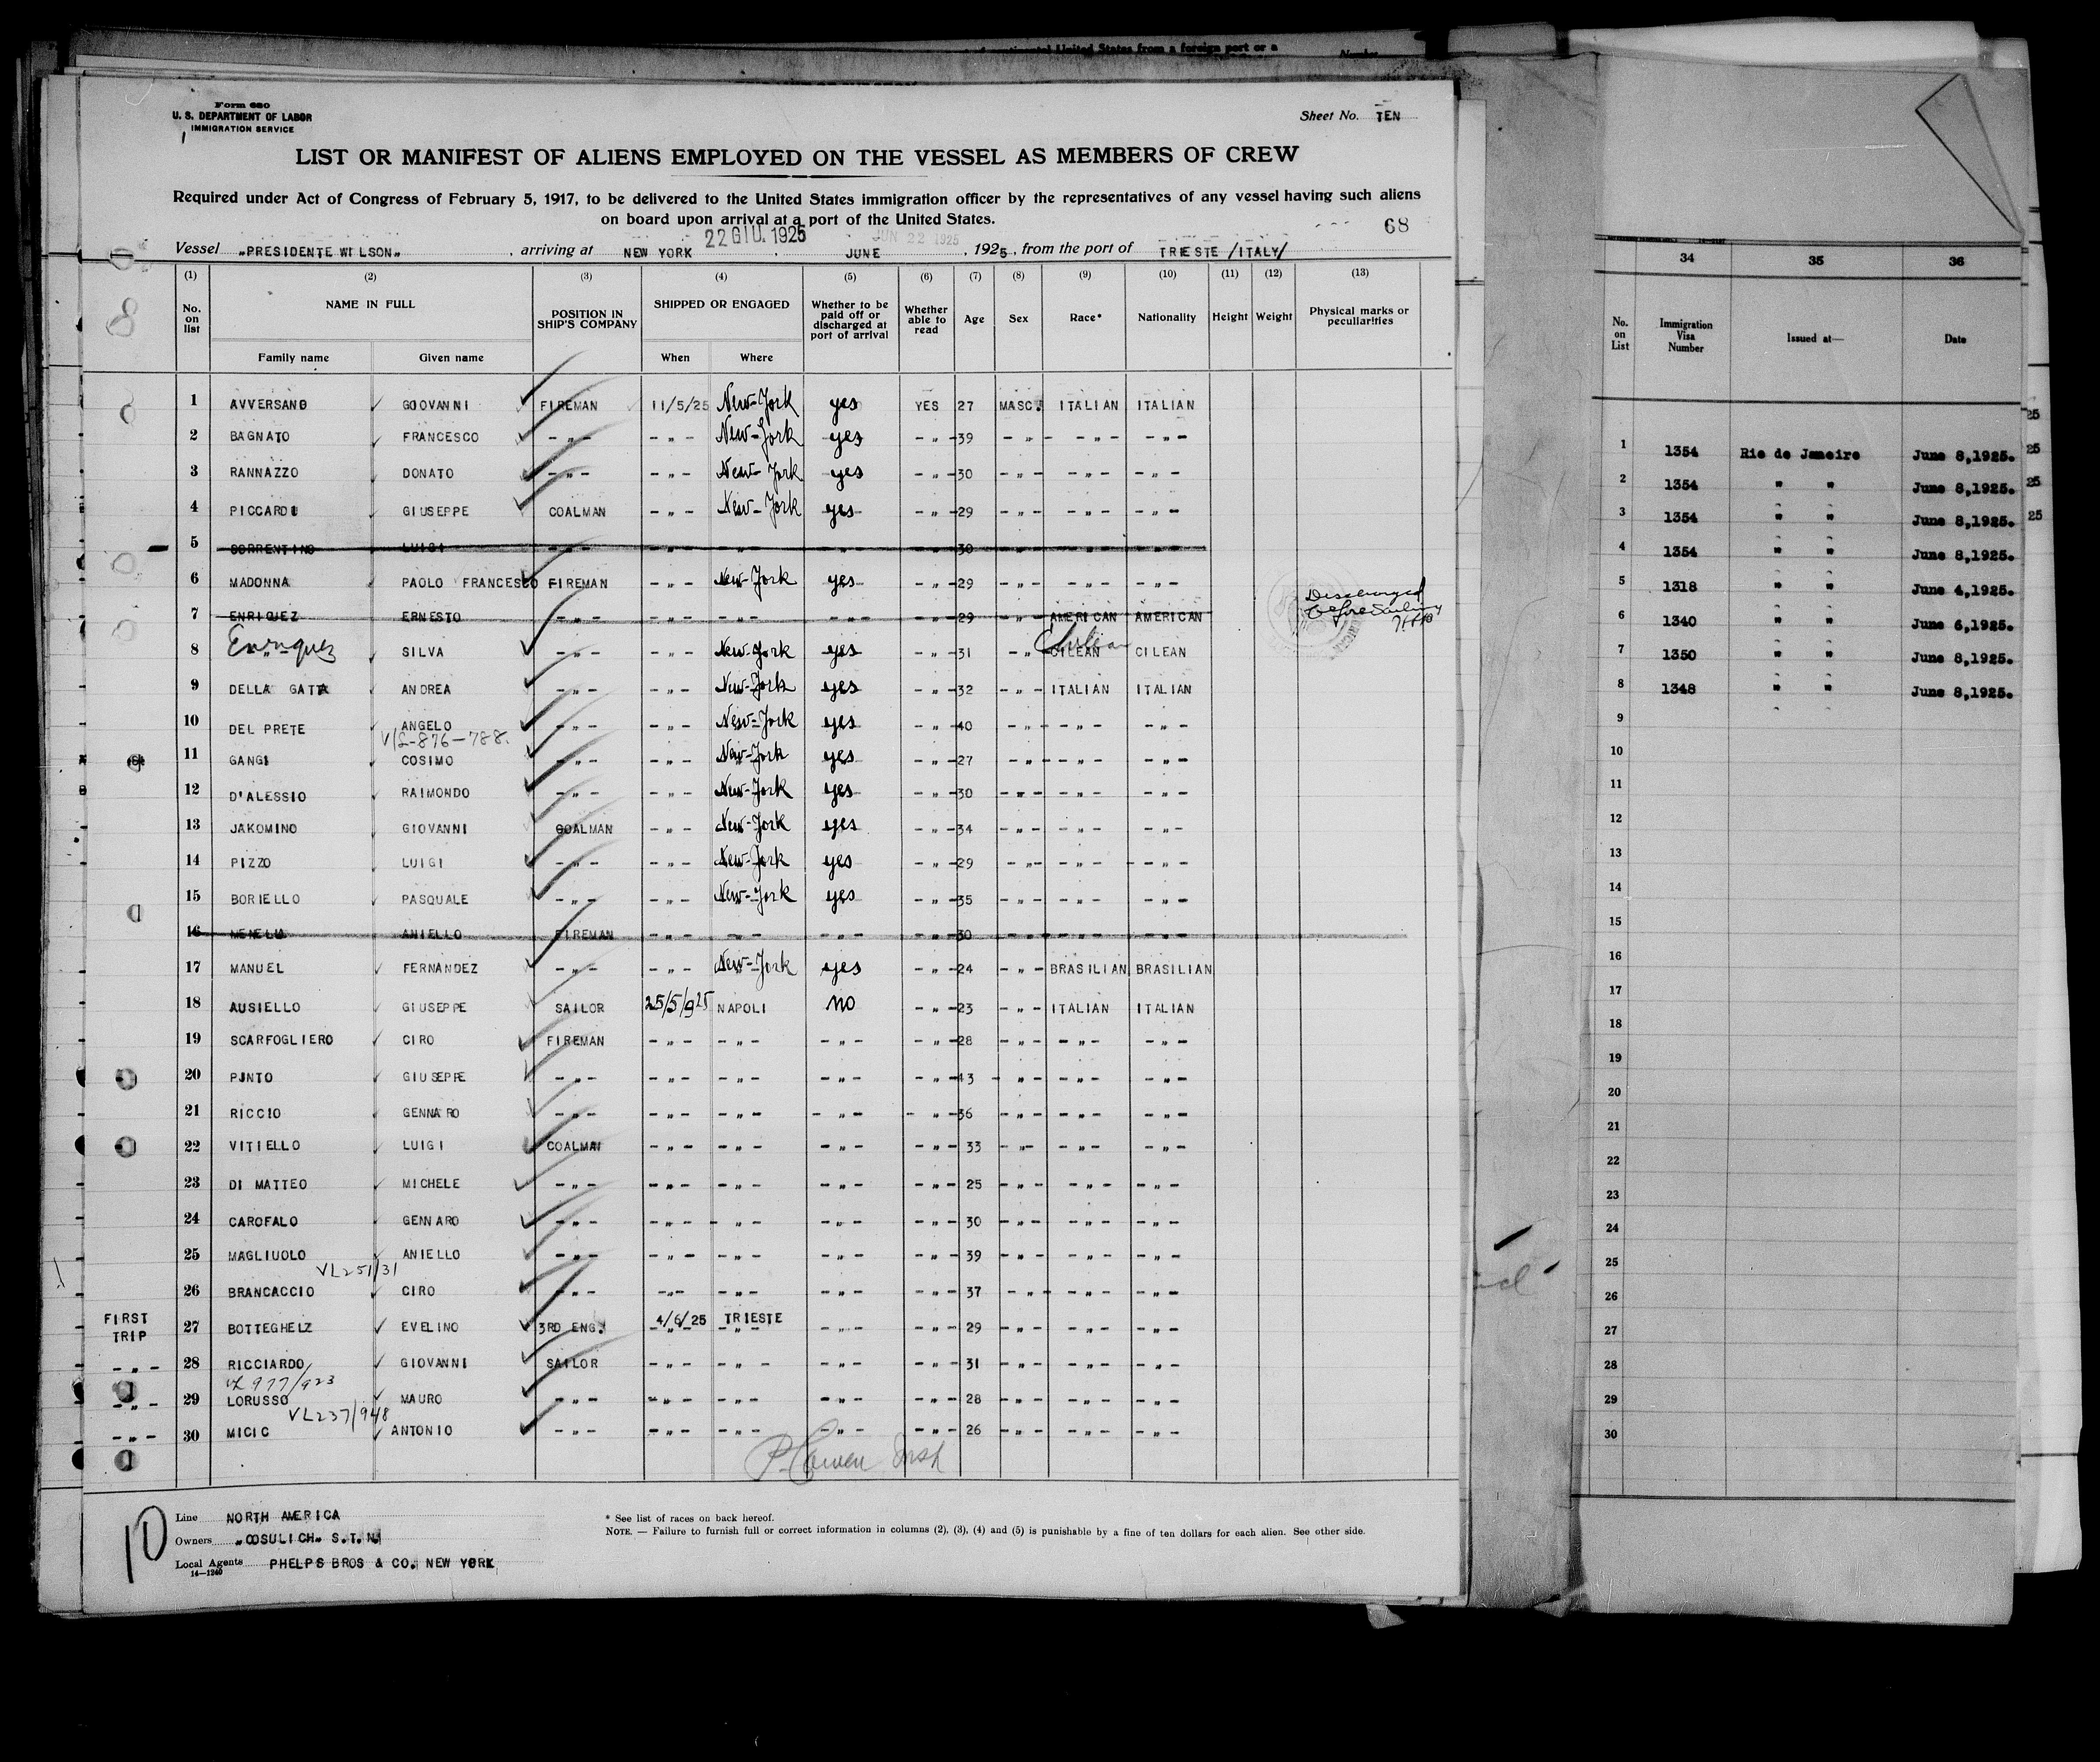 of continental United States from a foreign port or a
Form 680
U. S. DEPARTMENT OF LABOR
IMMIGRATION SERVICE
Sheet No. TEN
LIST OR MANIFEST OF ALIENS EMPLOYED ON THE VESSEL AS MEMBERS OF CREW
Required under Act of Congress of February 5, 1917, to be delivered to the United States immigration officer by the representatives of any vessel having such aliens
on board upon arrival at a port of the United States.
68
22 GIU. 1925 JUN 22 1925
Vessel „PRESIDENTE WILSON„ , arriving at NEW YORK , JUNE , 1925, from the port of TRIESTE /ITALY/
(1) (2) (3) (4) (5) (6) (7) (8) (9) (10) (11) (12) (13)
No. on list NAME IN FULL Family name Given name POSITION IN SHIP'S COMPANY SHIPPED OR ENGAGED When Where Whether to be paid off or discharged at port of arrival Whether able to read Age Sex Race* Nationality Height Weight Physical marks or peculiarities
1 AVVERSANO GOOVANNI FIREMAN 11/5/25 New-York yes YES 27 MASC. ITALIAN ITALIAN
2 BAGNATO FRANCESCO -„- -„- New-York yes -„- 39 -„- -„- -„-
3 RANNAZZO DONATO -„- -„- New-York yes -„- 30 -„- -„- -„-
4 PICCARDI GIUSEPPE COALMAN -„- New-York yes -„- 29 -„- -„- -„-
5 SORRENTINO LUIGI -„- -„- -„- -„- -„- 30 -„- -„- -„-
6 MADONNA PAOLO FRANCESCO FIREMAN -„- New-York yes -„- 29 -„- -„- -„-
7 ENRIQUEZ ERNESTO -„- -„- -„- -„- -„- 29 -„- AMERICAN AMERICAN Discharged before Sailing
8 Enriquez SILVA -„- -„- New-York yes -„- 31 -„- CILEAN Chilean CILEAN
9 DELLA GATTA ANDREA -„- -„- New-York yes -„- 32 -„- ITALIAN ITALIAN
10 DEL PRETE ANGELO -„- -„- New-York yes -„- 40 -„- -„- -„-
V/L-876-788.
11 GANGI COSIMO -„- -„- New-York yes -„- 27 -„- -„- -„-
12 D'ALESSIO RAIMONDO -„- -„- New-York yes -„- 30 -„- -„- -„-
13 JAKOMINO GIOVANNI COALMAN -„- New-York yes -„- 34 -„- -„- -„-
14 PIZZO LUIGI -„- -„- New-York yes -„- 29 -„- -„- -„-
15 BORIELLO PASQUALE -„- -„- New-York yes -„- 35 -„- -„- -„-
16 ANIELLO FIREMAN -„- -„- -„- -„- 30 -„- -„- -„-
17 MANUEL FERNANDEZ -„- -„- New-York yes -„- 24 -„- BRASILIAN BRASILIAN
18 AUSIELLO GIUSEPPE SAILOR 25/5/925 NAPOLI no -„- 23 -„- ITALIAN ITALIAN
19 SCARFOGLIERO CIRO FIREMAN -„- -„- -„- -„- 28 -„- -„- -„-
20 PINTO GIUSEPPE -„- -„- -„- -„- -„- 43 -„- -„- -„-
21 RICCIO GENNARO -„- -„- -„- -„- -„- 36 -„- -„- -„-
22 VITIELLO LUIGI COALMAN -„- -„- -„- -„- 33 -„- -„- -„-
23 DI MATTEO MICHELE -„- -„- -„- -„- -„- 25 -„- -„- -„-
24 CAROFALO GENNARO -„- -„- -„- -„- -„- 30 -„- -„- -„-
25 MAGLIUOLO ANIELLO -„- -„- -„- -„- -„- 39 -„- -„- -„-
VL251/31
26 BRANCACCIO CIRO -„- -„- -„- -„- -„- 37 -„- -„- -„-
FIRST TRIP 27 BOTTEGHELZ EVELINO 3RD ENG. 4/6/25 TRIESTE -„- -„- 29 -„- -„- -„-
-„- 28 RICCIARDO GIOVANNI SAILOR -„- -„- -„- -„- 31 -„- -„- -„-
VL 977/923
-„- 29 LORUSSO MAURO -„- -„- -„- -„- -„- 28 -„- -„- -„-
VL237/948
-„- 30 MICIC ANTONIO -„- -„- -„- -„- -„- 26 -„- -„- -„-
10
Line NORTH AMERICA
Owners „COSULICH„ S.T.N.
Local Agents PHELPS BROS & CO. NEW YORK
14—1240
* See list of races on back hereof.
NOTE. — Failure to furnish full or correct information in columns (2), (3), (4) and (5) is punishable by a fine of ten dollars for each alien. See other side.
34 35 36
No. on List Immigration Visa Number Issued at— Date
1 1354 Rio de Janeiro June 8,1925.
2 1354 " " June 8,1925.
3 1354 " " June 8,1925.
4 1354 " " June 8,1925.
5 1318 " " June 4,1925.
6 1340 " " June 6,1925.
7 1350 " " June 8,1925.
8 1348 " " June 8,1925.
9
10
11
12
13
14
15
16
17
18
19
20
21
22
23
24
25
26
27
28
29
30
25
25
25
25